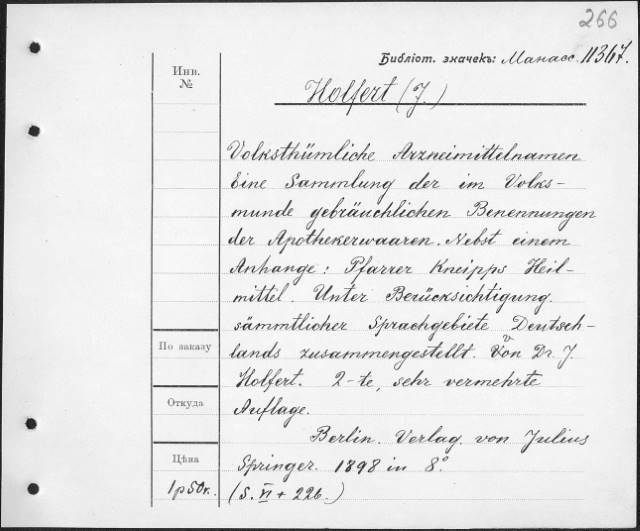 266
Библіот. значекъ: Манасс. 11367.
Инв.
№
Holfert (J.)
Volksthümliche Arzneimittelnamen
Eine Sammlung der im Volks-
munde gebräuchlichen Benennungen
der Apothekerwaaren. Nebst einem
Anhange: Pfarrer Kneipps Heil-
mittel. Unter Berücksichtigung
sämmtlicher Sprachgebiete Deutsch-
По заказу
lands zusammengestellt. Von Dr. J.
Holfert. 2-te, sehr vermehrte
Откуда
Auflage.
Berlin. Verlag von Julius
Цѣна
Springer. 1898 in 8°.
1 р 50 к.
(S. VI + 226.)